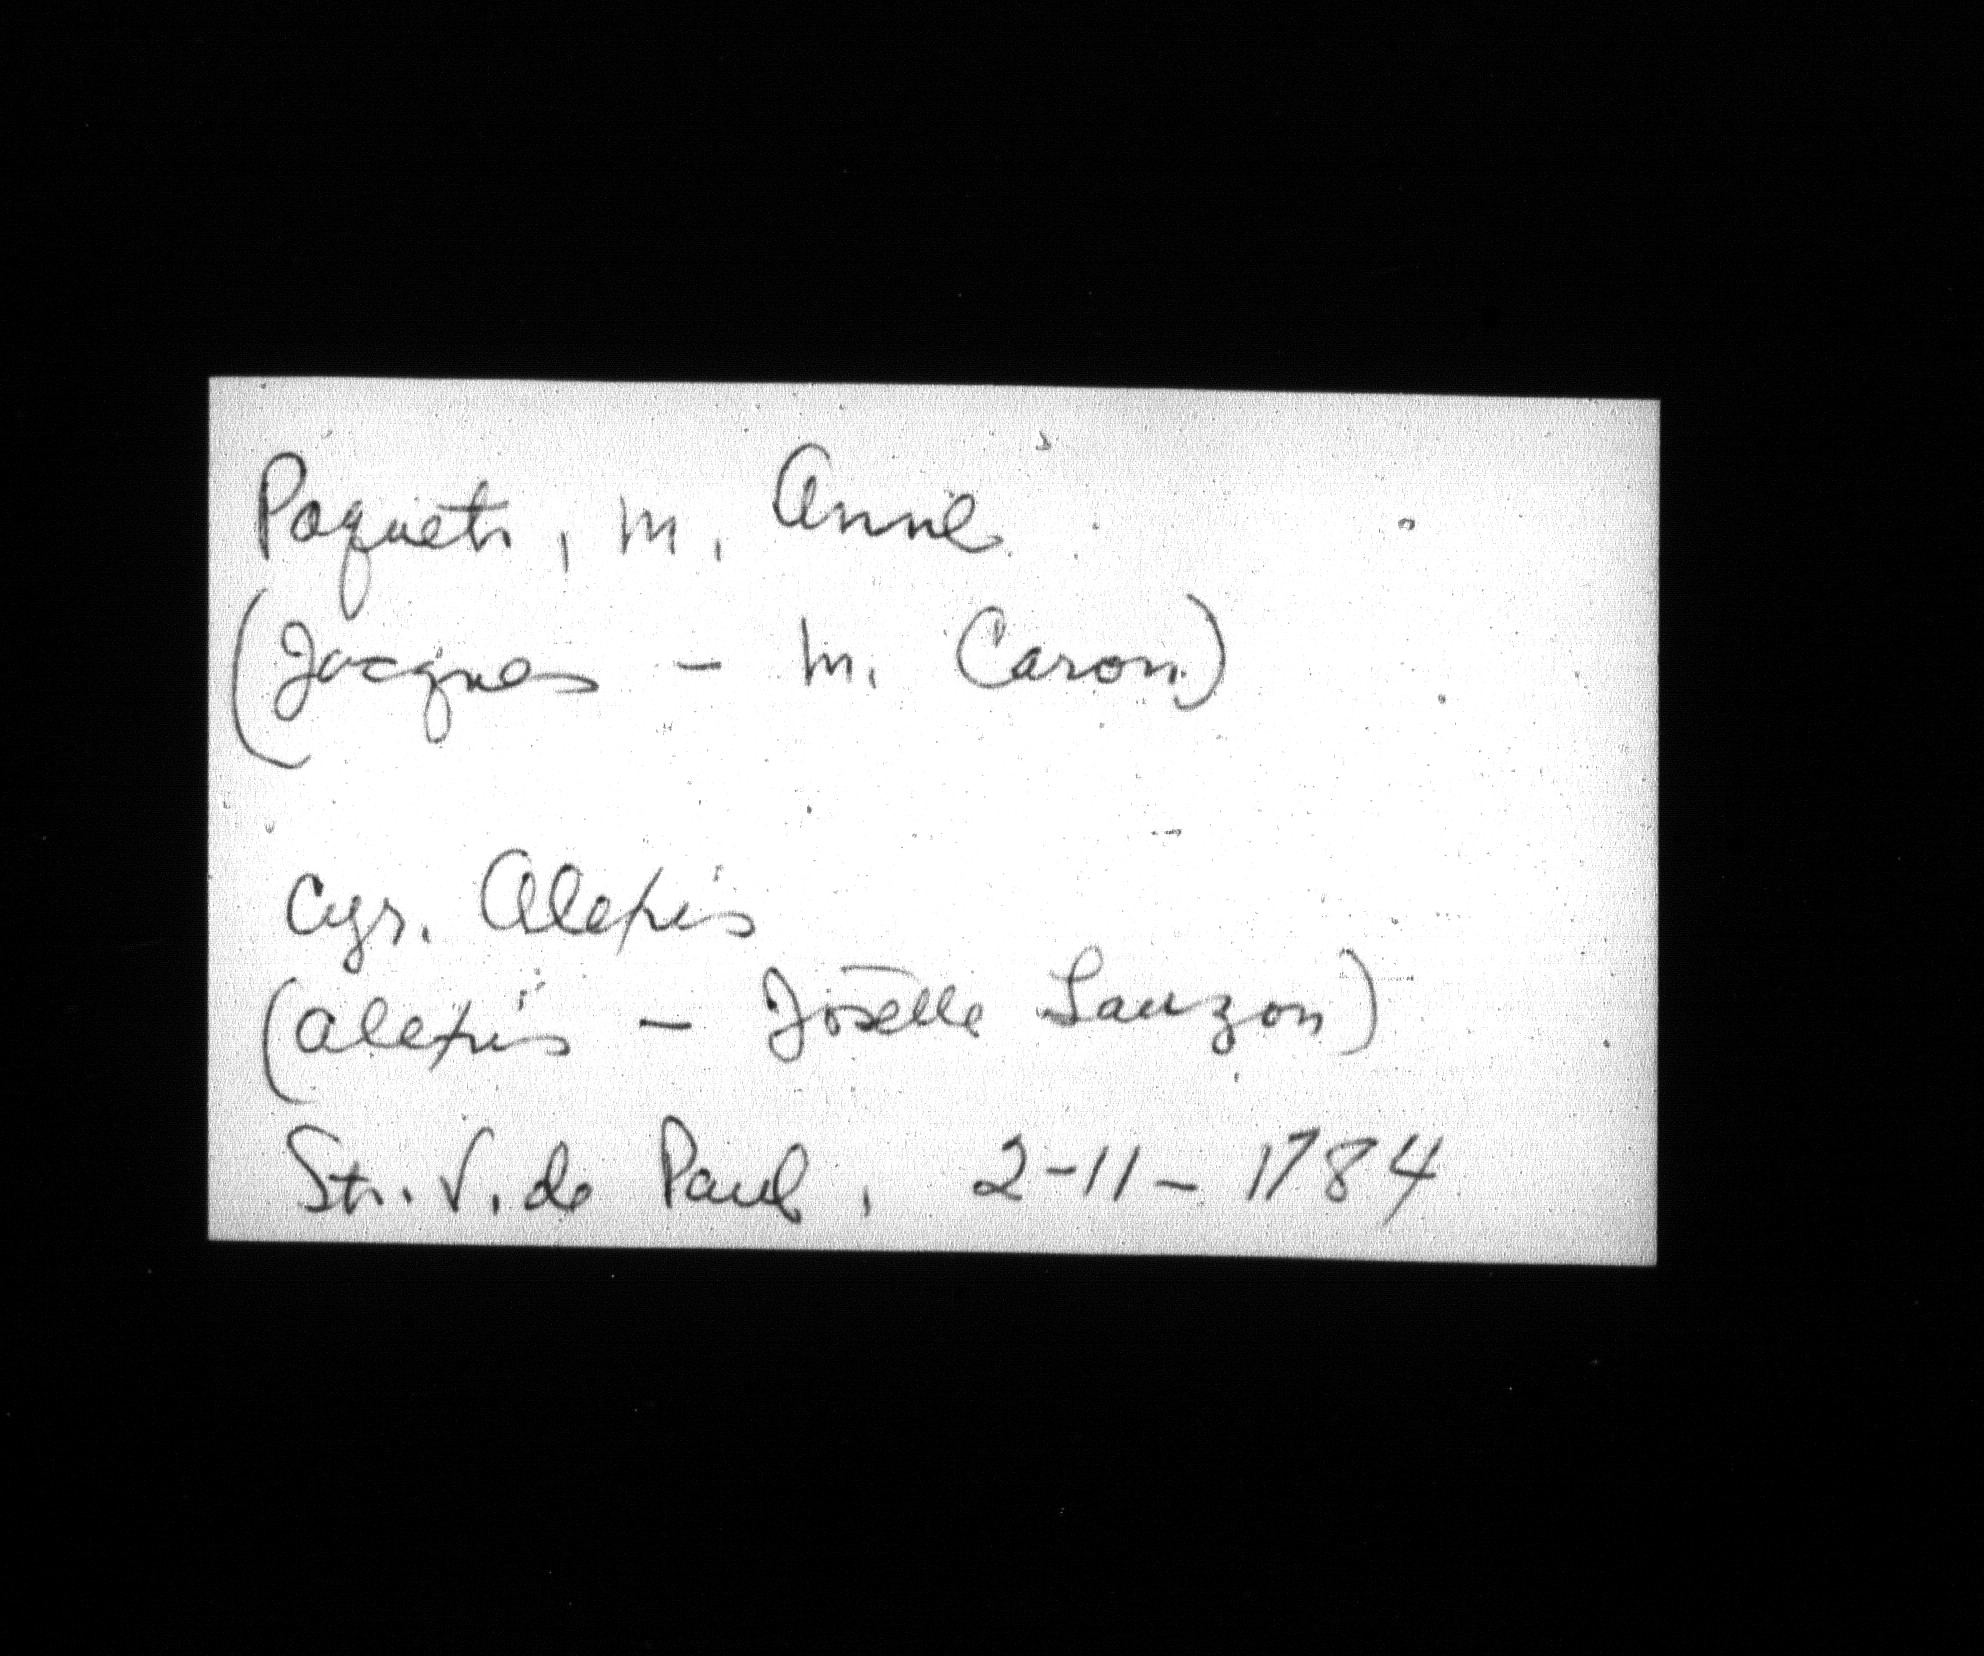 Paquet, M. Anne
(Jacques - M. Caron)
Cyr. Alexis
(Alexis - Joselle Lauzon)
St. V. de Paul, 2-11-1784